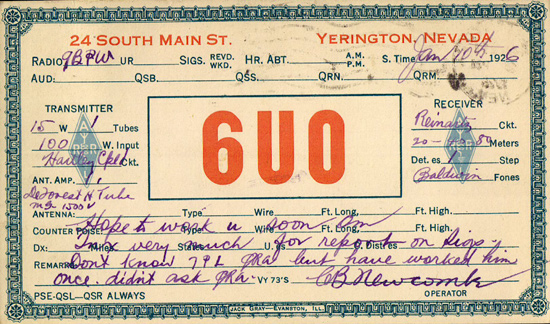 24 SOUTH MAIN ST. YERINGTON, NEVADA
RADIO 9BPW UR SIGS. REVD. WKD. HR. ABT. A.M. P.M. S. TIME Jan 1926
AUD: QSB. QSS: QRN. QRM
TRANSMITTER
15 W 1 Tubes
100 W. Input
Hartley Cpld Ckt.
ANT. AMP. 1
DeForest H Tube
MG 1500 V
6UO
RECEIVER
Reinartz Ckt.
20-40-80 Meters
Det. es 1 Step
Baldwin Fones
ANTENNA: Type Wire Ft. Long, Ft. High.
COUNTER POISE: Type Wire Ft. Long, Ft. High.
Hope to work u soon om
DX: Miles States U. S. Distres
Tnx very much for report on sigs
REMARKS: Dont know 7PL QRA but have worked him
once. didn't ask QRA. VY 73'S CB Newcombe
PSE-QSL—QSR ALWAYS OPERATOR
JACK GRAY—EVANSTON, ILL.